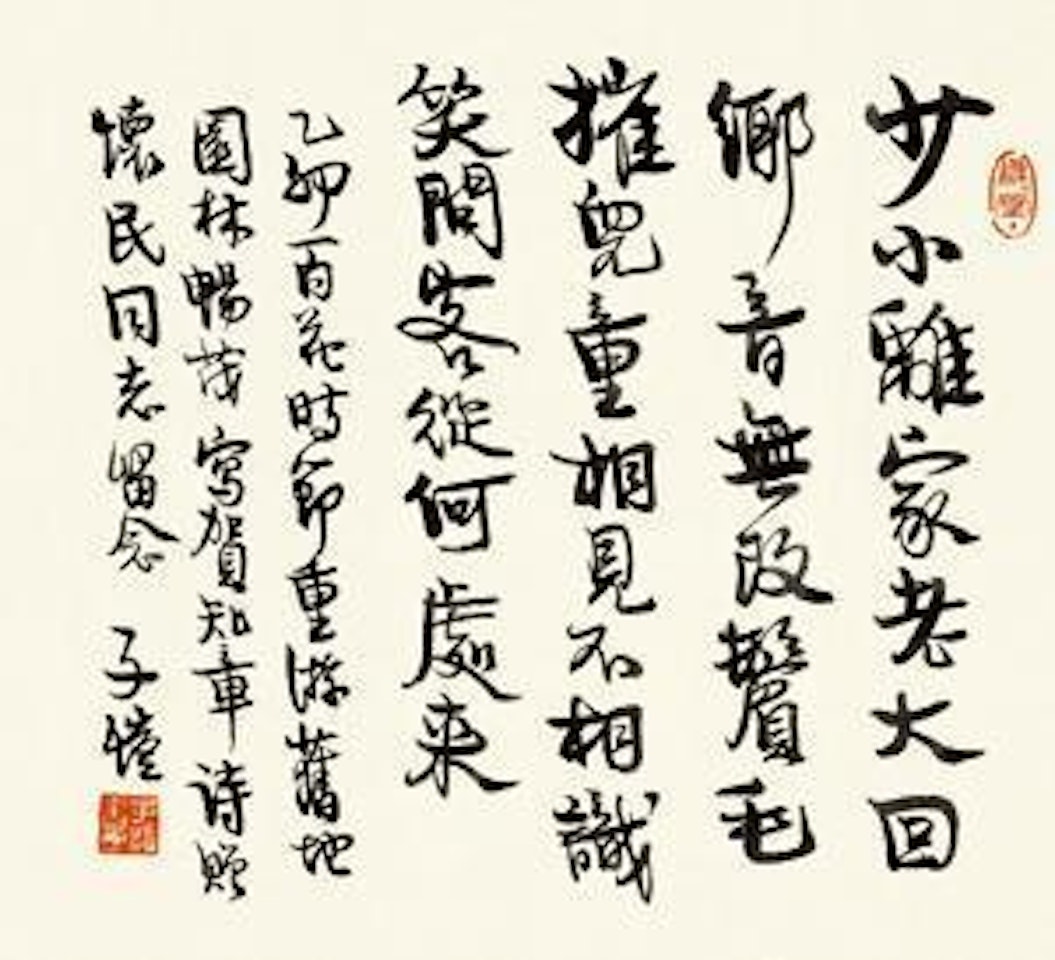 少小離家老大回
鄉音無改鬢毛
摧兒童相見不相識
笑問客從何處来
乙卯百花時節重游舊地
園林暢茂寫賀知章诗贈
懷民同志留念 子愷